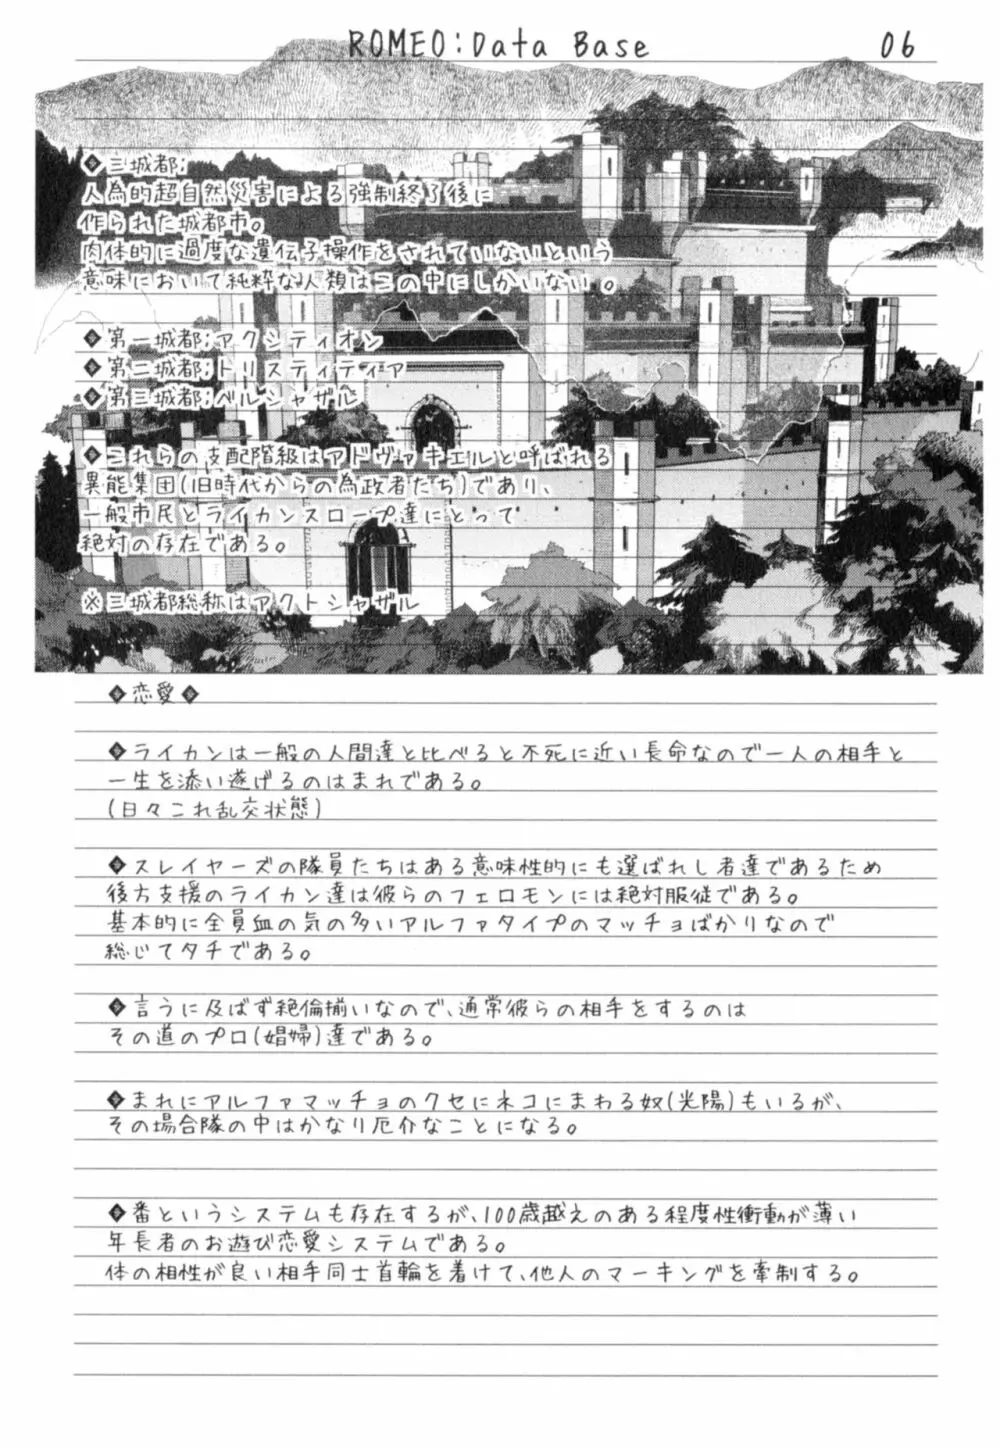 ROMEO:Data Base 06
◆三城都;
人為的超自然災害による強制終了後に
作られた城都市。
肉体的に過度な遺伝子操作をされていないという
意味において純粋な人類はこの中にしかいない。
◆第一城都;アクシティオン
◆第二城都;トリスティティア
◆第三城都;ベルシャザル
◆これらの支配階級はアドヴァキエルと呼ばれる
異能集団(旧時代からの為政者たち)であり、
一般市民とライカンスロープ達にとって
絶対の存在である。
※三城都総称はアクトシャザル
◆恋愛◆
◆ライカンは一般の人間達と比べると不死に近い長命なので一人の相手と
一生を添い遂げるのはまれである。
(日々これ乱交状態)
◆スレイヤーズの隊員たちはある意味性的にも選ばれし者達であるため
後方支援のライカン達は彼らのフェロモンには絶対服従である。
基本的に全員血の気の多いアルファタイプのマッチョばかりなので
総じてタチである。
◆言うに及ばず絶倫揃いなので、通常彼らの相手をするのは
その道のプロ(娼婦)達である。
◆まれにアルファマッチョのクセにネコにまわる奴(光陽)もいるが、
その場合隊の中はかなり厄介なことになる。
◆番というシステムも存在するが、100歳越えのある程度性衝動が薄い
年長者のお遊び恋愛システムである。
体の相性が良い相手同士首輪を着けて、他人のマーキングを牽制する。